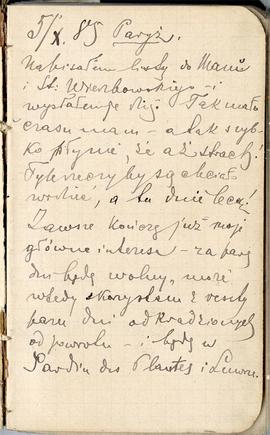 5/X. 85 Paryż.
Napisałem listy do Mani
i St. Wierzbowskiego – i
wysłałem je dziś. Tak mało
czasu mam – a tak szyb-
ko płynie, że aż strach!
Tyle rzeczy by się chciało
widzieć, a tu dnie lecą!
Zawsze kończą już moje
główne interesa – za parę
dni będę wolny, może
wtedy skorzystam z reszty
paru dni odkradzionych
od powrotu – i będę w
Jardin des Plantes i Luwrze.